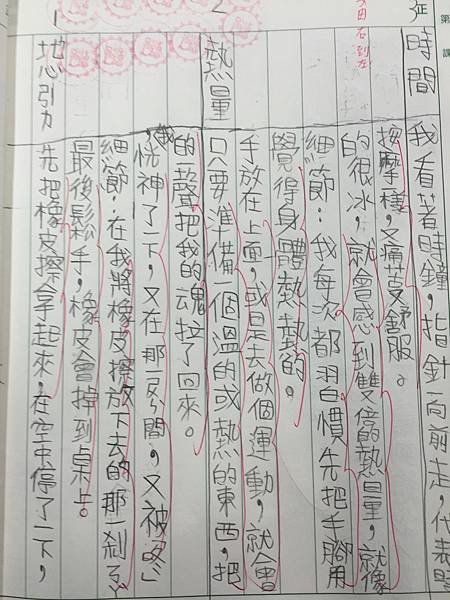 1
地心引力 先把橡皮擦拿起來，在空中停了一下，
最後鬆手，橡皮會掉到桌上。
細節：在我將橡皮擦放下去的那一剎
我恍神了一下，又在那一瞬間，又被「咚」
的一聲把我的魂拉了回來。
2
熱量 只要準備一個溫的或熱的東西，把
手放在上面，或是去做個運動，就會
覺得身體熱熱的。
細節：我每次都習慣先把手腳用
的很冰，就會感到雙倍的熱量，就像
按摩樣，又痛苦又舒服。
時間 我看著時鐘，指針向前走，代表
右到左
第
課